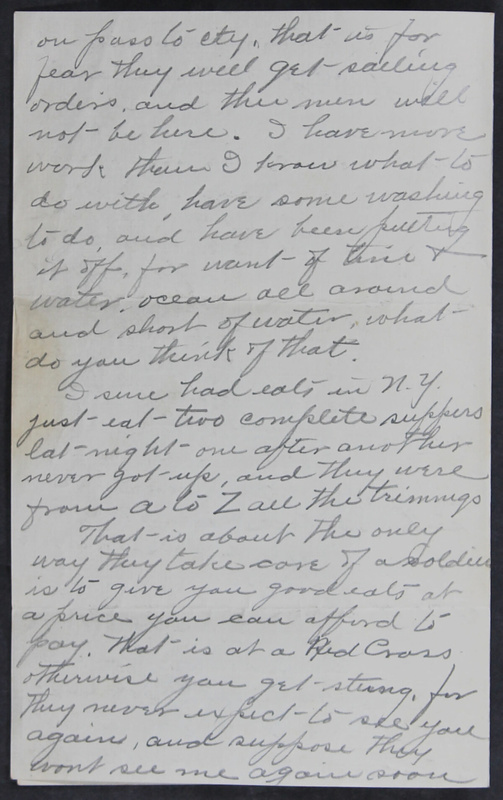 on pass to cty, that is for
fear they will get sailing
orders, and the men will
not be here. I have more
work than I know what to
do with, have some washing
to do, and have been putting
it off, for want of time &
water, ocean all around
and short of water, what
do you think of that.
I sure had eats in N.Y.
just eat two complete suppers
lat night one after another
never got up, and they were
from A to Z all the trimmings
That is about the only
way they take care of a soldier
is to give you good eats at
a price you can afford to
pay. That is at a Red Cross
otherwise you get stung, for
they never expect to see you
again, and suppose they
wont see me again soon